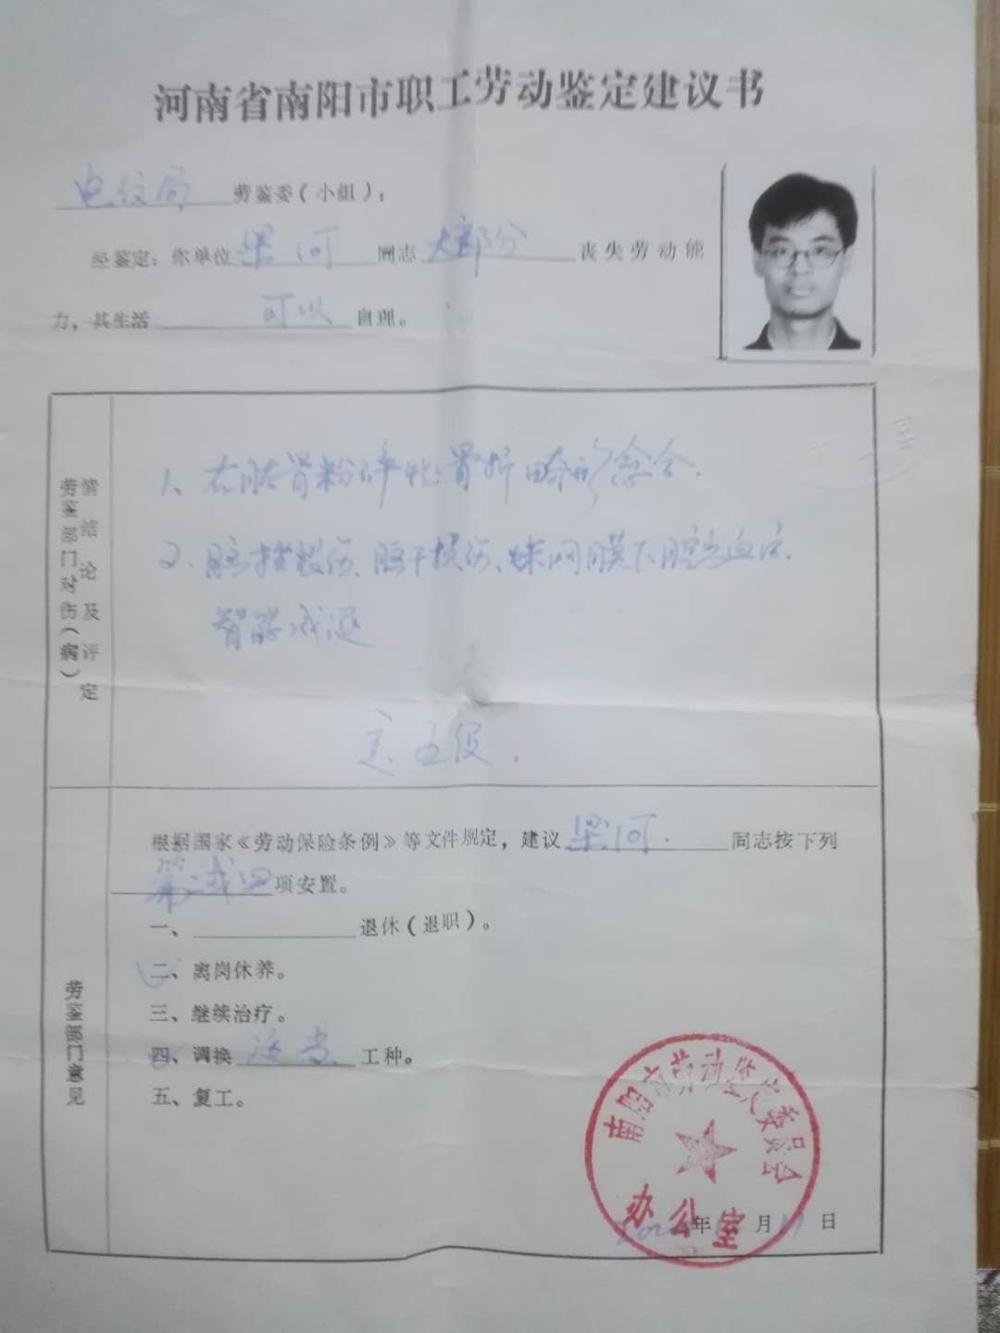 河南省南阳市职工劳动鉴定建议书
电信局 劳鉴委（小组）：
经鉴定：你单位 梁河 同志 大部分 丧失劳动能
力，其生活 可以 自理。
劳鉴部门对伤（病）
情结论及评定
1、右胫骨粉碎性骨折畸形愈合.
2、脑挫裂伤、脑干损伤、蛛网膜下腔出血后.
智能减退
定五级.
劳鉴部门意见
根据国家《劳动保险条例》等文件规定，建议 梁河. 同志按下列
第二或四 项安置。
一、 退休（退职）。
二、离岗休养。
三、继续治疗。
四、调换 适当 工种。
五、复工。
南阳市劳动鉴定委员会
办公室
年 月 日